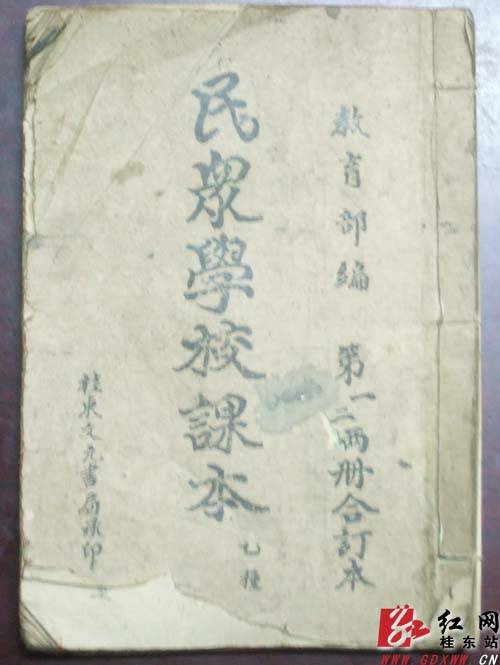 教育部編 第一二兩册合訂本
民眾學校課本
乙種
桂東文元書局承印
红网
桂东站
WWW.GDXWW.CN